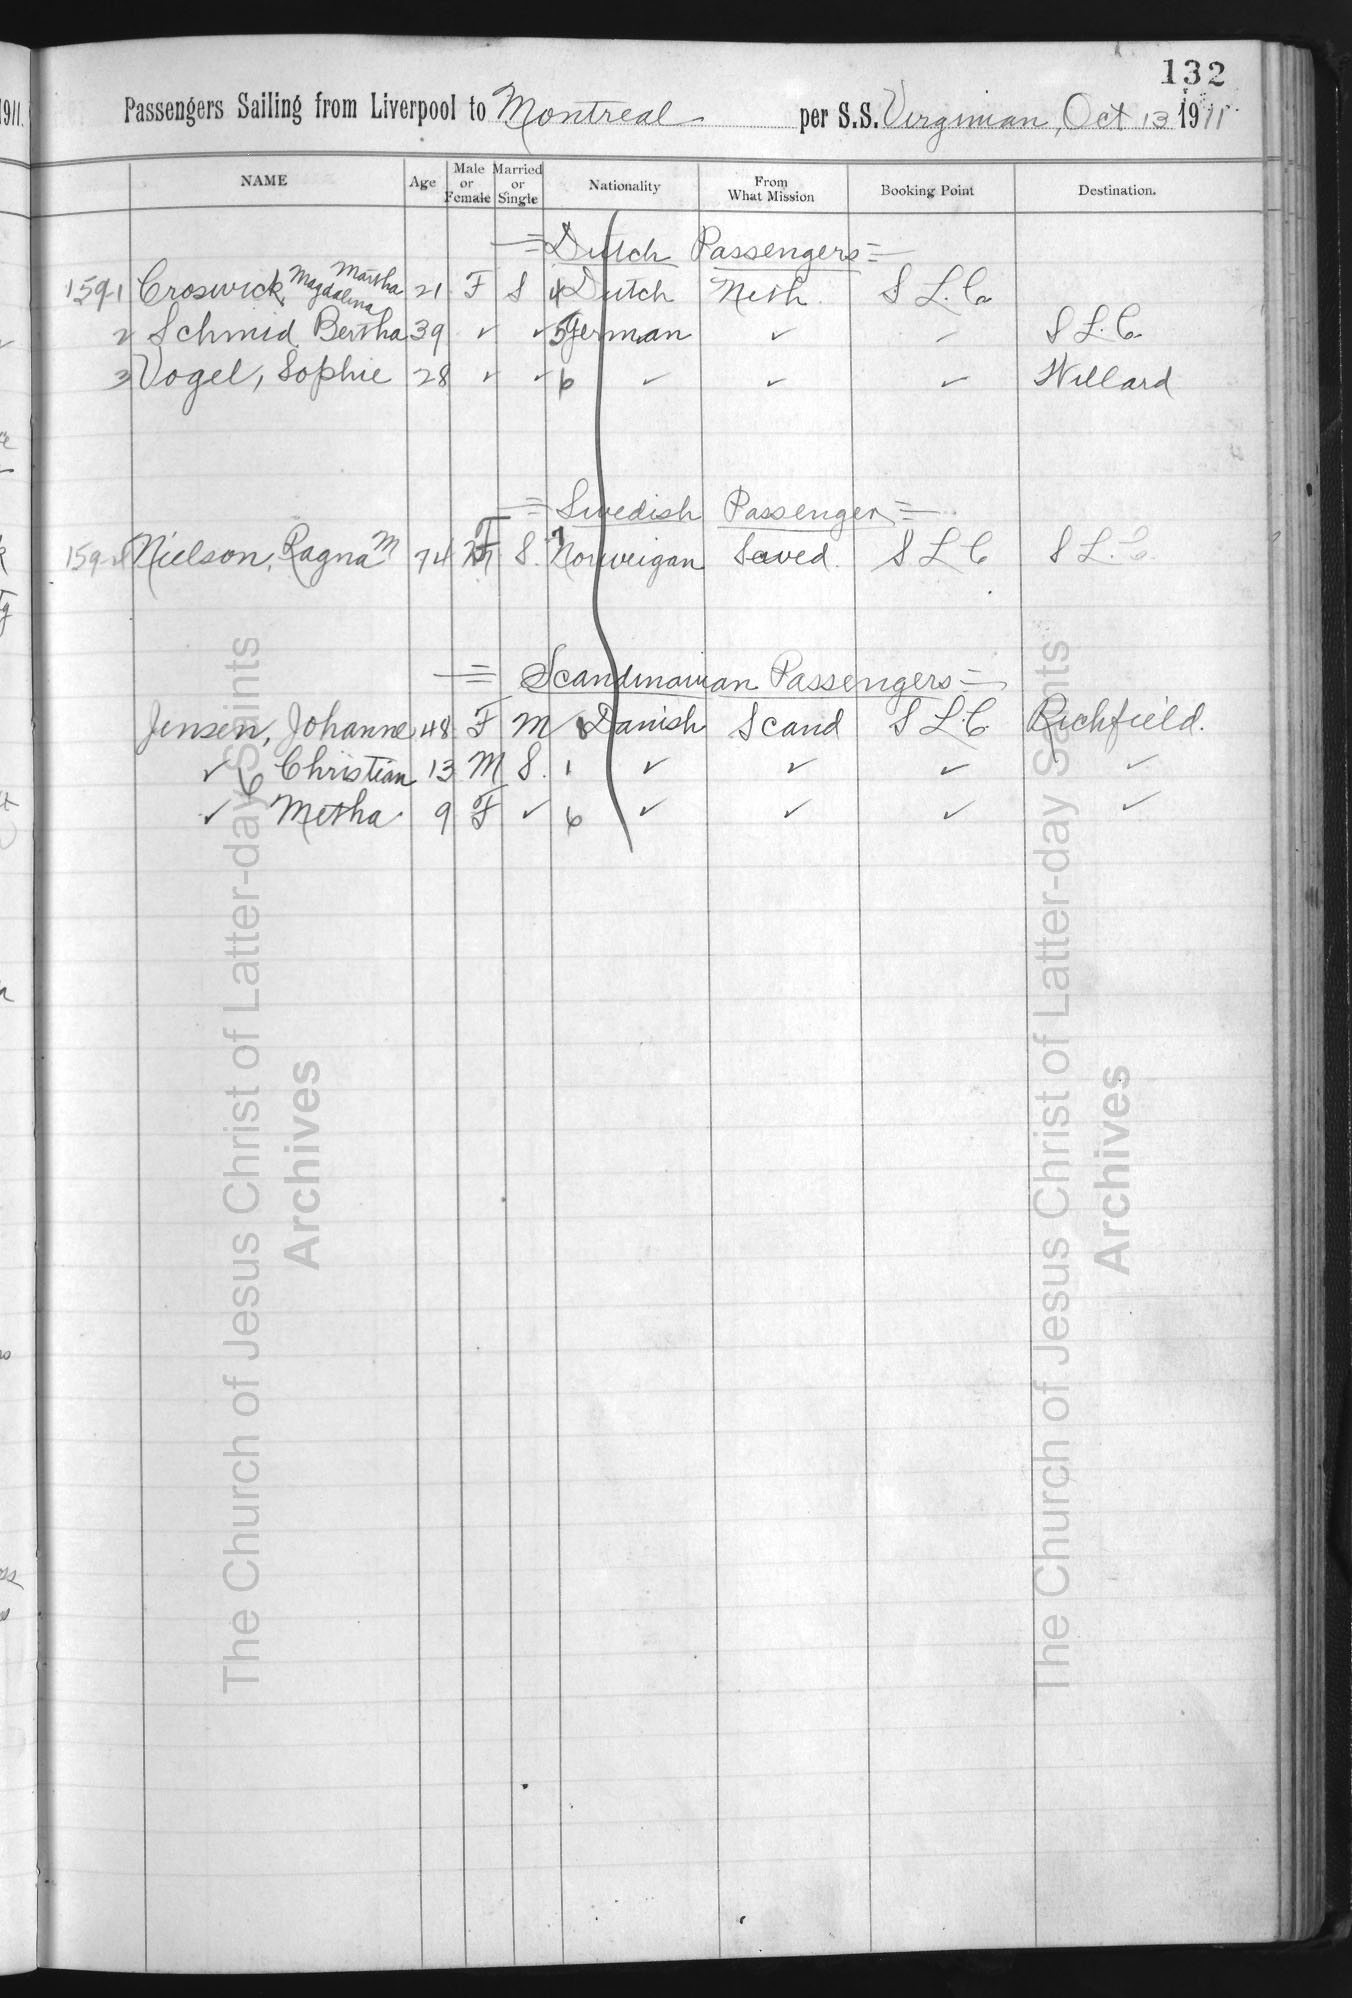 132
Passengers Sailing from Liverpool to Montreal per S.S. Virginian, Oct 13 1911
NAME Age Male or Female Married or Single Nationality From What Mission Booking Point Destination.
= Dutch Passengers =
159-1 Croswick, Martha Magdalena 21 F S 4 Dutch Neth. S L. C
2 Schmid Bertha 39 ✓ ✓ 5 German ✓ ✓ S L. C.
3 Vogel, Sophie 28 ✓ ✓ 6 ✓ ✓ ✓ Willard
= Swedish Passenger =
159-4 Nielson, Ragna M 74 F S. 7 Norweigan Swed. S L C S L. C.
= Scandinavian Passengers =
Jensen, Johanne 48 F M 8 Danish Scand S L. C Richfield.
✓ Christian 13 M S. 1 ✓ ✓ ✓ ✓
✓ Metha 9 F ✓ 6 ✓ ✓ ✓ ✓
The Church of Jesus Christ of Latter-day Saints
Archives
The Church of Jesus Christ of Latter-day Saints
Archives